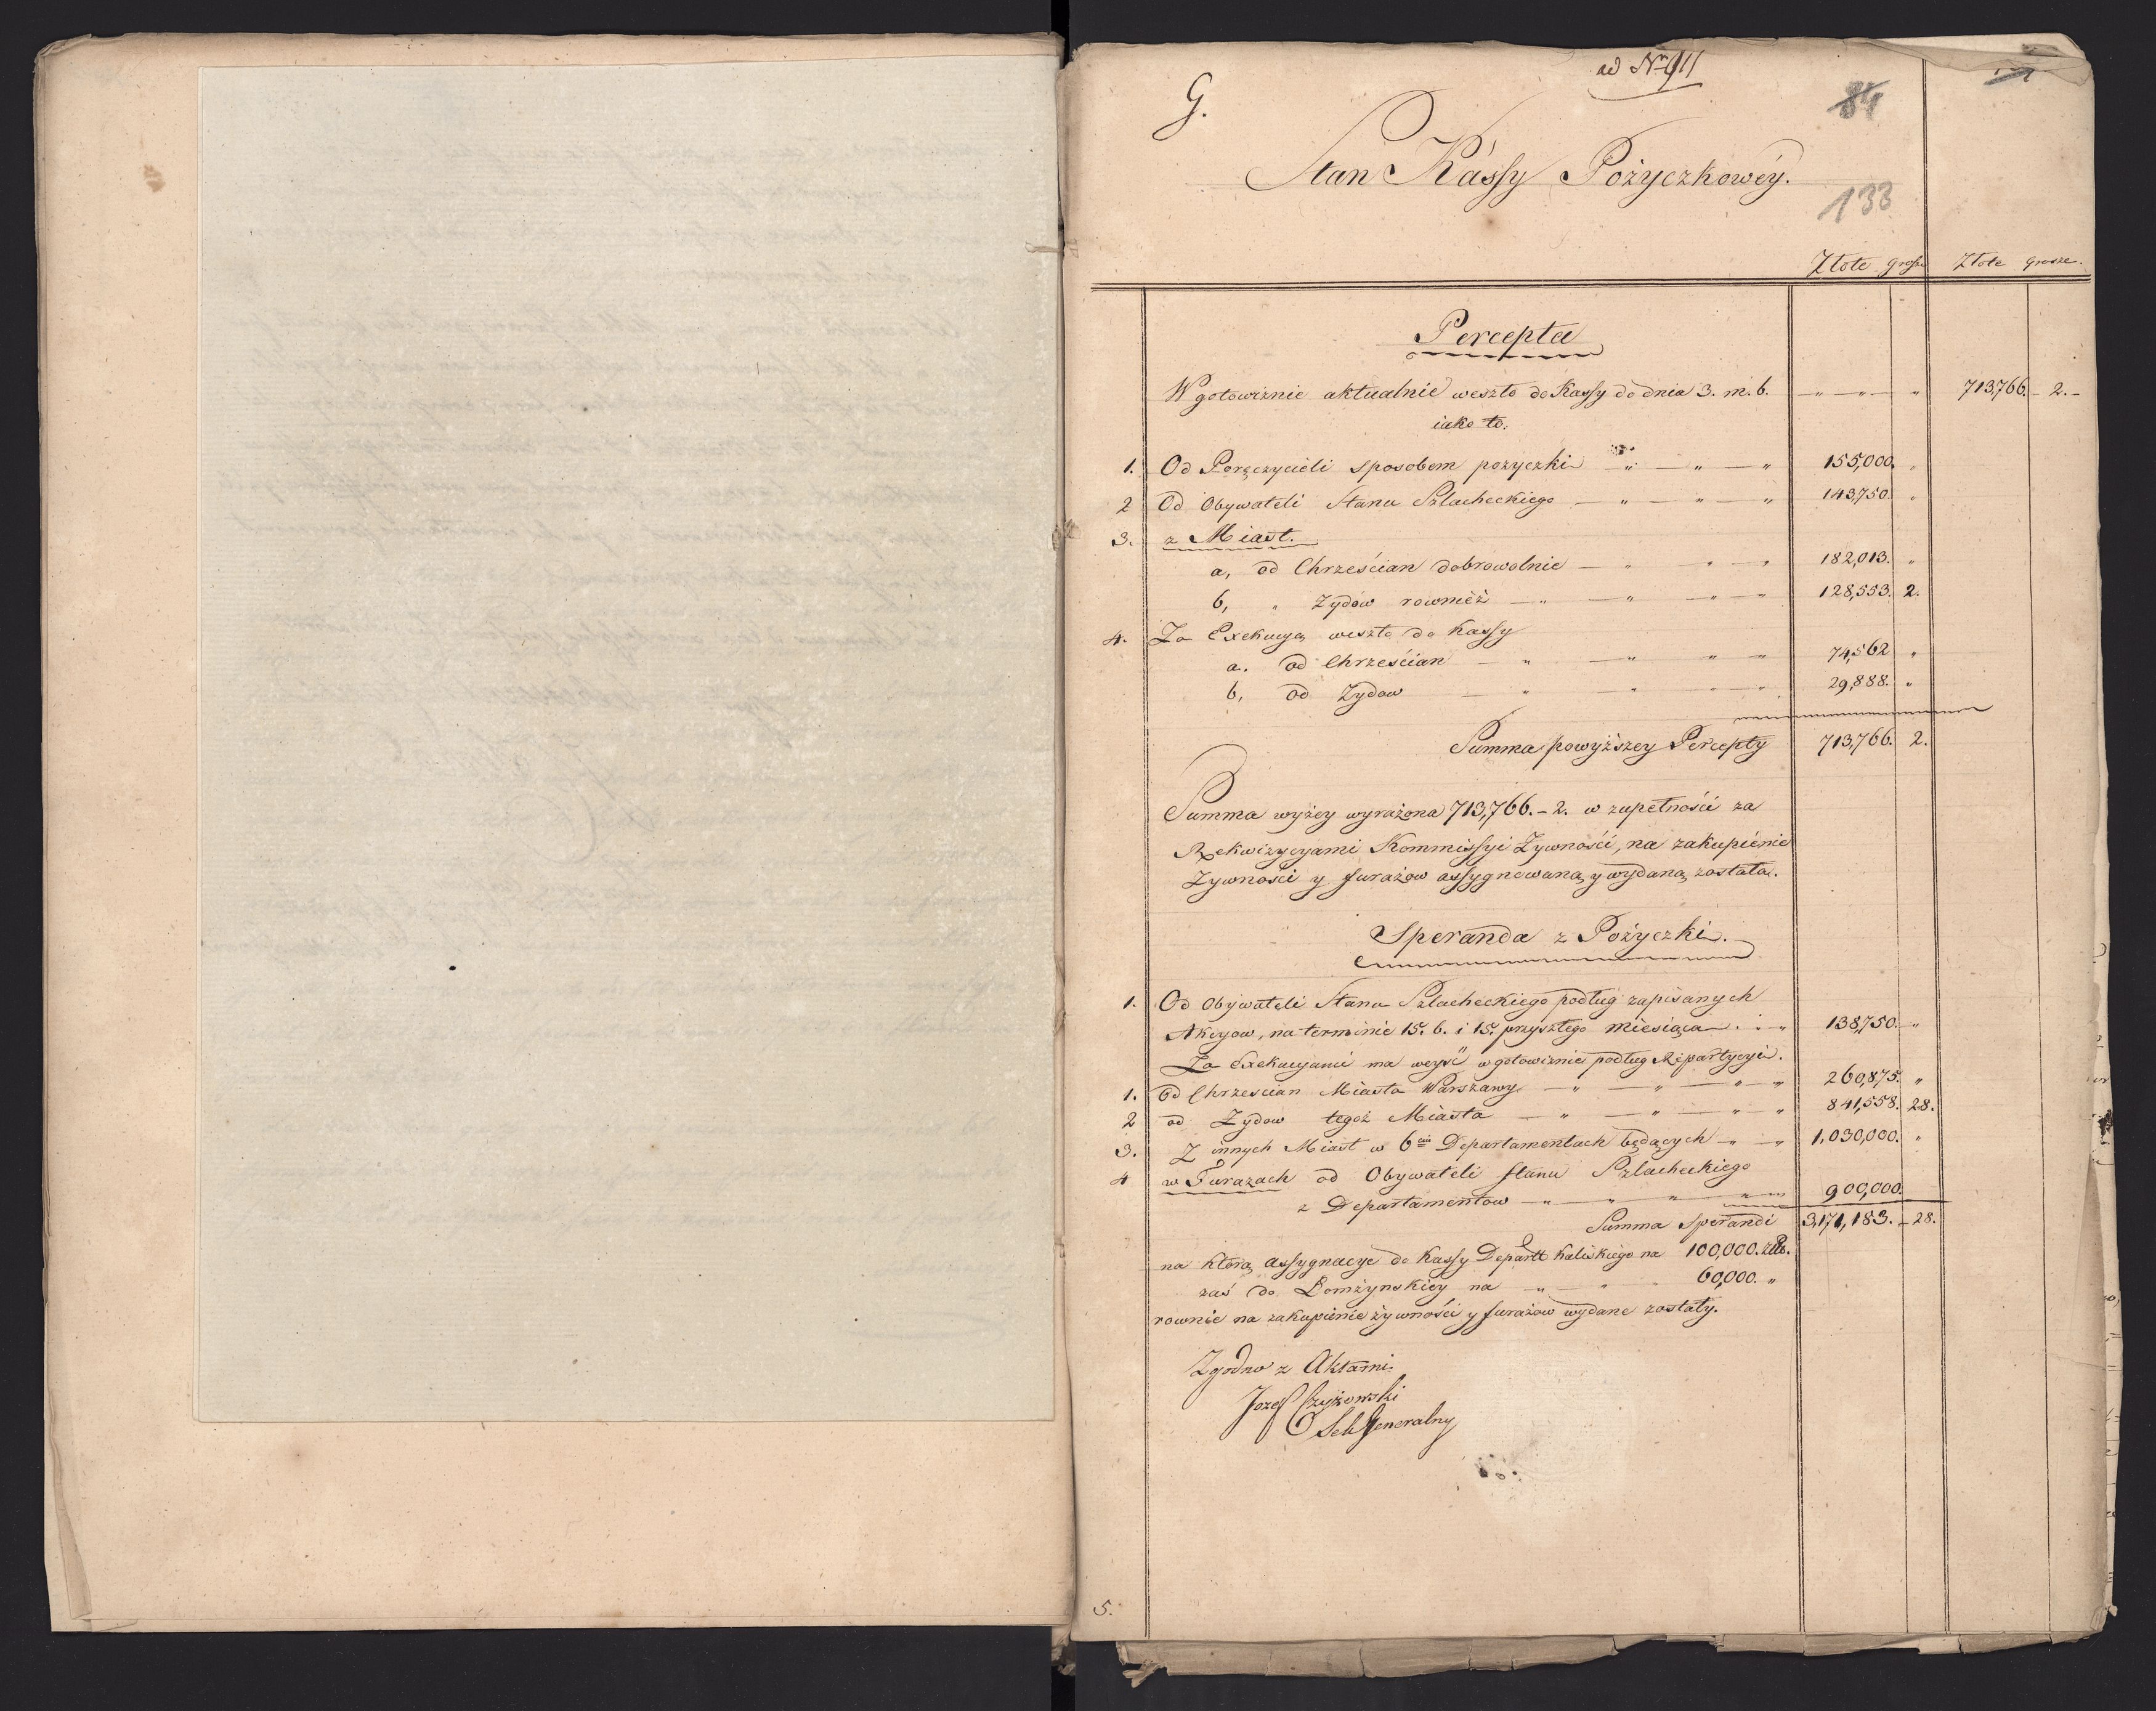 ad Nr 911
G.
84
Stan Kassy Pożyczkowéy.
133
Złote grosze Złote grosze.
Percepta
W gotowiznie aktualnie weszło do Kassy do dnia 3. m. b. 713,766. - 2. -
iako to.
1. Od Poręczycieli sposobem pożyczki 155,000. "
2 Od Obywateli Stanu Szlacheckiego 143,750. "
3. z Miast.
a, od Chrześcian dobrowolnie 182,013. "
b, " Zydow rownież 128,553. 2.
4. Za Exekucyą weszło do Kassy
a. od Chrześcian 74,562 "
b, od Zydow 29,888. "
Summa powyższey Percepty 713,766. 2.
Summa wyżey wyrażona 713,766. - 2. w zupełności za
Rekwizycyami Kommissyi Zywności, na zakupienie
Zywności y furażow assygnowaną y wydaną została.
Speranda z Pożyczki.
1. Od Obywateli Stanu Szlacheckiego podług zapisanych
Akcyow, na terminie 15. b. i 15. przyszłego miesiąca 138,750. "
Za Exekucyami ma weyść w gotowiznie podług Repartycyi.
1. Od Chrzescian Miasta Warszawy 260,875. "
2 od Zydow tegoż Miasta 841,558. 28.
3. Z innych Miast w 6ciu Departamentach będących 1,030,000. "
4 w Furazach od Obywateli stanu Szlacheckiego
z Departamentow 900,000.
Summa Sperandi 3,171,183. - 28.
na którą assygnacye do Kassy Departt Kaliskiego na 100,000. złłp.
zaś do Łomżynskiey na 60,000. "
rownie na zakupienie żywności y furażow wydane zostały.
Zgodno z Aktami.
Jozef Czyżowski
Sek Generalny
5.